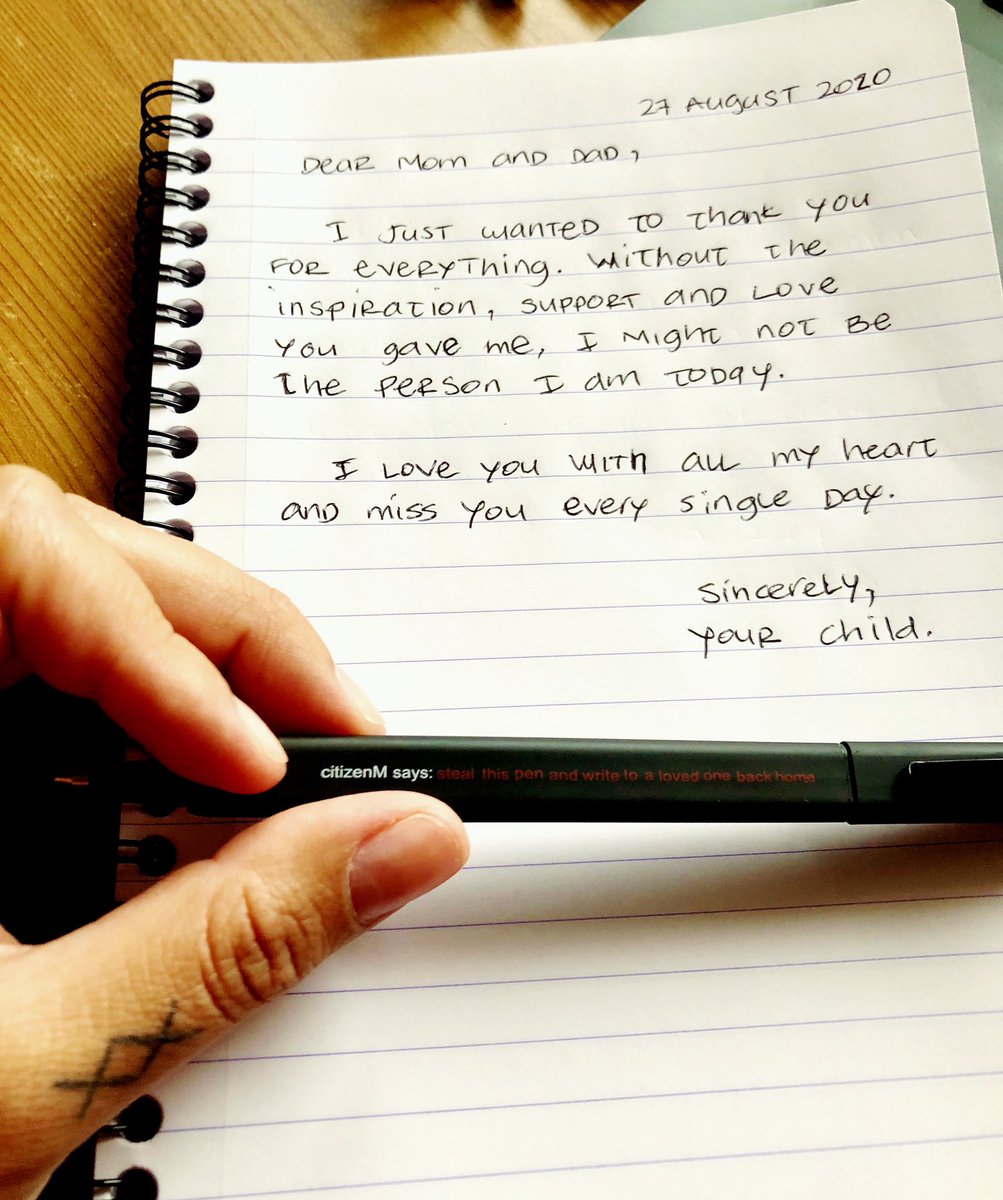 27 August 2020
Dear Mom and Dad,
I just wanted to thank you
for everything. Without the
inspiration, support and love
you gave me, I might not be
the person I am today.
I love you with all my heart
and miss you every single day.
Sincerely,
your child.
citizenM says: steal this pen and write to a loved one back home